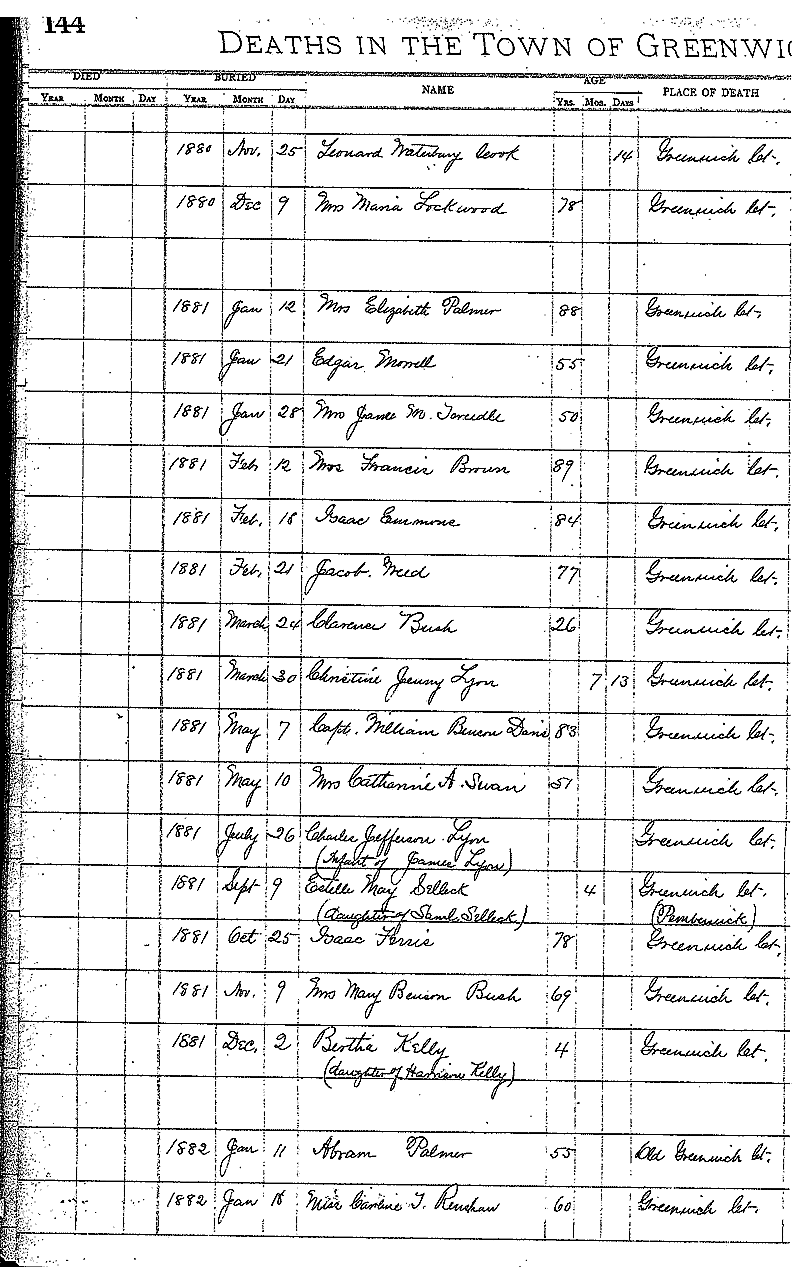 144
DEATHS IN THE TOWN OF GREENWIC
DIED BURIED NAME AGE PLACE OF DEATH
YEAR MONTH DAY YEAR MONTH DAY YRS. MOS. DAYS
1880 Nov. 25 Leonard Waterbury Cook 14 Greenwich Ct.
1880 Dec 9 Mrs Maria Lockwood 78 Greenwich Ct.
1881 Jan 12 Mrs Elizabeth Palmer 88 Greenwich Ct.
1881 Jan 21 Edgar Morrell 55 Greenwich Ct.
1881 Jan 28 Mrs James M. Tweedle 50 Greenwich Ct.
1881 Feb 12 Mrs Francis Brown 89 Greenwich Ct.
1881 Feb. 18 Isaac Emmons 84 Greenwich Ct.
1881 Feb. 21 Jacob. Weed 77 Greenwich Ct.
1881 March 24 Clarence Bush 26 Greenwich Ct.
1881 March 30 Christine Jenny Lyon 7 13 Greenwich Ct.
1881 May 7 Capt. William Benson Davis 83 Greenwich Ct.
1881 May 10 Mrs Catharine A. Swan 51 Greenwich Ct.
1881 July 26 Charles Jefferson Lyon Greenwich Ct.
(Infant of James Lyon)
1881 Sept 9 Estelle May Selleck 4 Greenwich Ct.
(daughter of Saml. Selleck) (Pemberwick)
1881 Oct 25 Isaac Ferris 78 Greenwich Ct.
1881 Nov. 9 Mrs Mary Benson Bush 69 Greenwich Ct.
1881 Dec. 2 Bertha Kelly 4 Greenwich Ct.
(daughter of Harrison Kelly)
1882 Jan 11 Abram Palmer 55 Old Greenwich Ct.
1882 Jan 18 Miss Caroline T. Renshaw 60 Greenwich Ct.